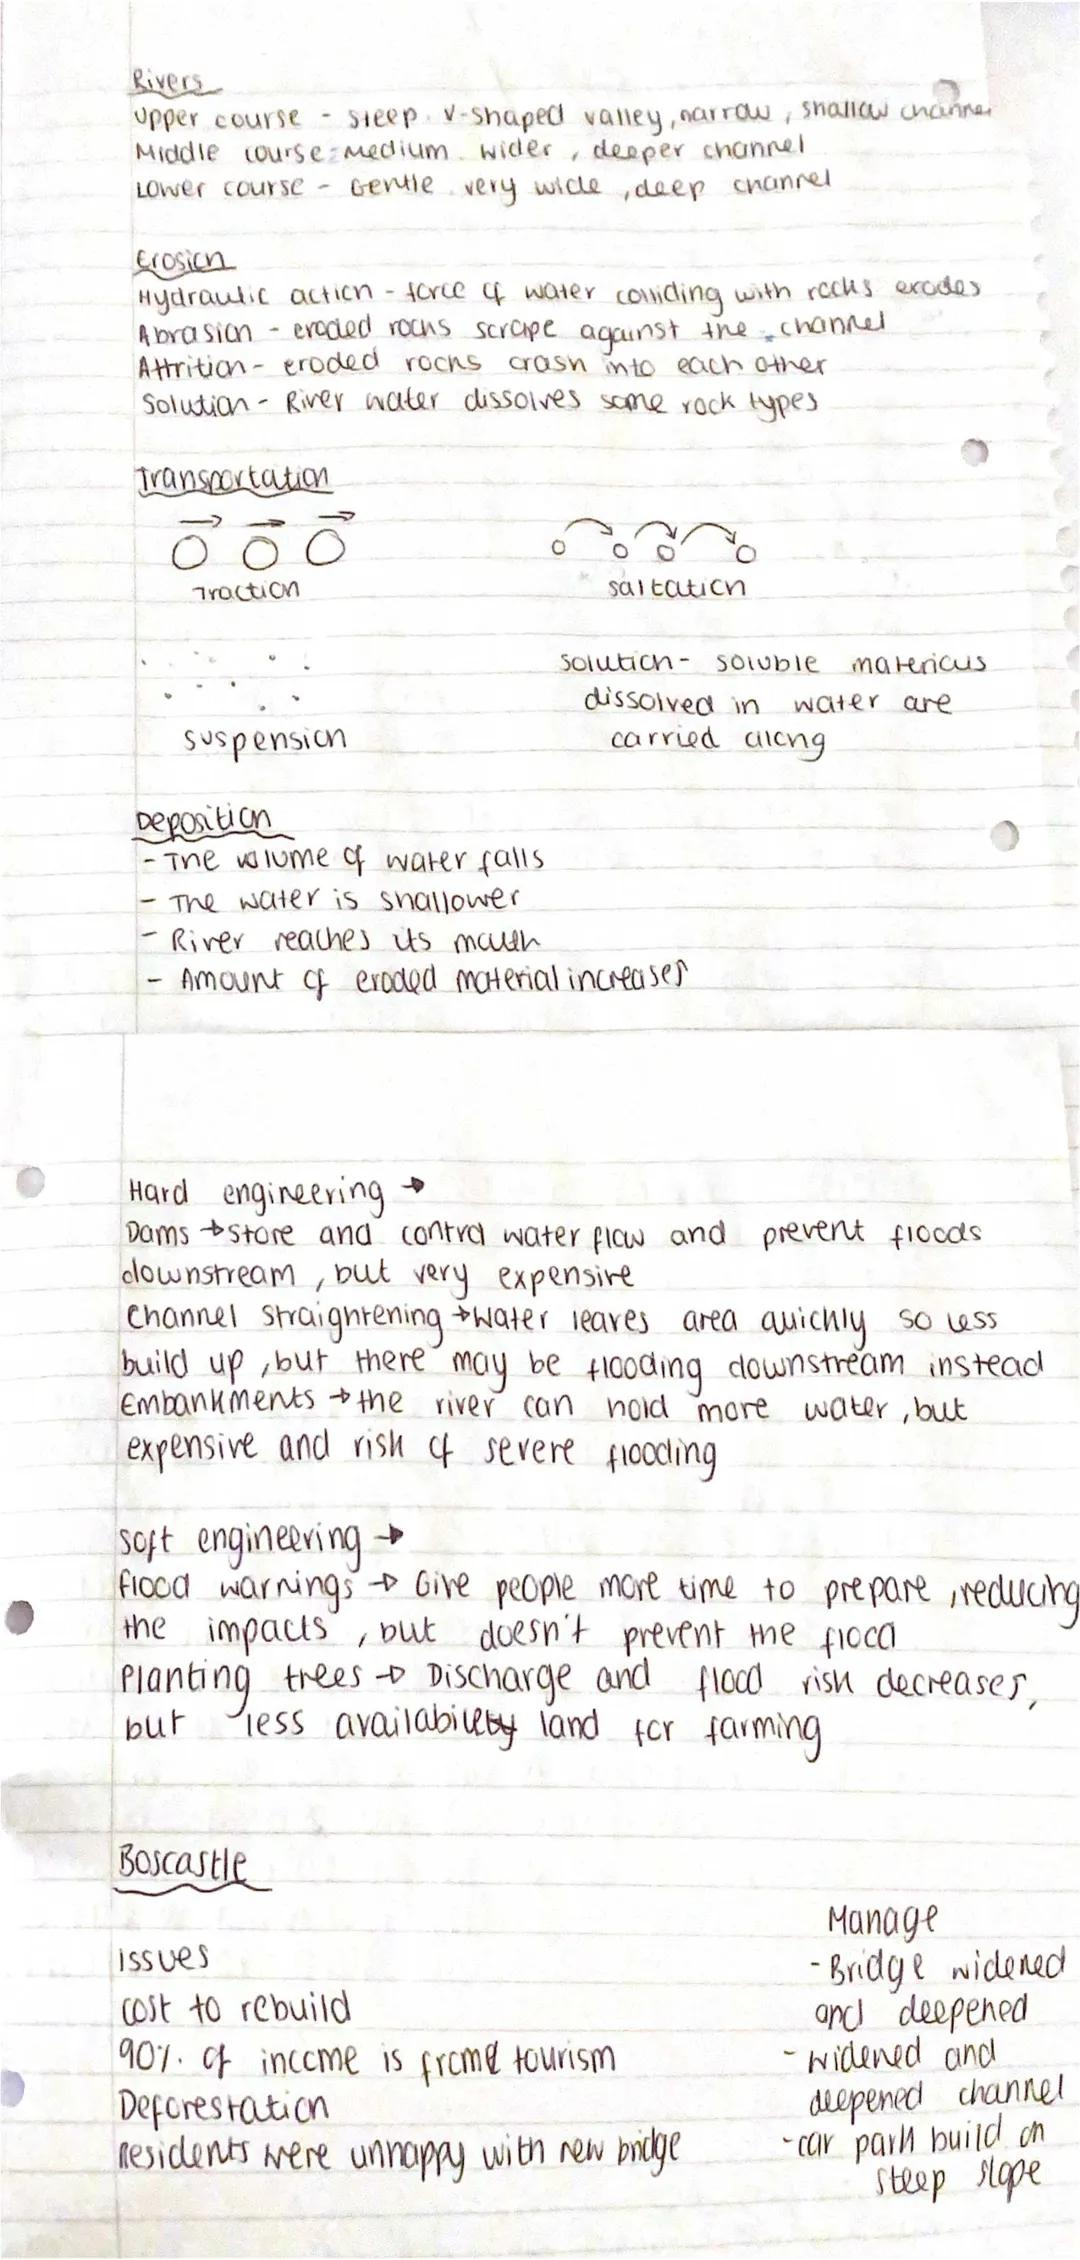 Rivers
Upper course - steep V-shaped valley, narrow, shallow channel
Middle course - Medium wider, deeper channel
Lower course - Gentle very wide, deep channel
Erosion
Hydraulic action - force of water colliding with rocks erodes
Abrasion - eroded rocks scrape against the channel
Attrition - eroded rocks crash into each other
Solution - River water dissolves some rock types
Transportation
Traction
saltation
suspension
solution - soluble materials
dissolved in water are
carried along
Deposition
- The volume of water falls
- The water is shallower
- River reaches its mouth
- Amount of eroded material increases
Hard engineering →
Dams → store and control water flow and prevent floods
downstream, but very expensive
Channel straightening → Water leaves area quickly so less
build up, but there may be flooding downstream instead
Embankments → the river can hold more water, but
expensive and risk of severe flooding
Soft engineering →
flood warnings → Give people more time to prepare, reducing
the impacts, but doesn't prevent the flood
Planting trees → Discharge and flood risk decreases,
but less availability land for farming
Boscastle
issues
cost to rebuild
90% of income is from tourism
Deforestation
Residents were unhappy with new bridge
Manage
- Bridge widened
and deepened
- widened and
deepened channel
- car park build on
steep slope